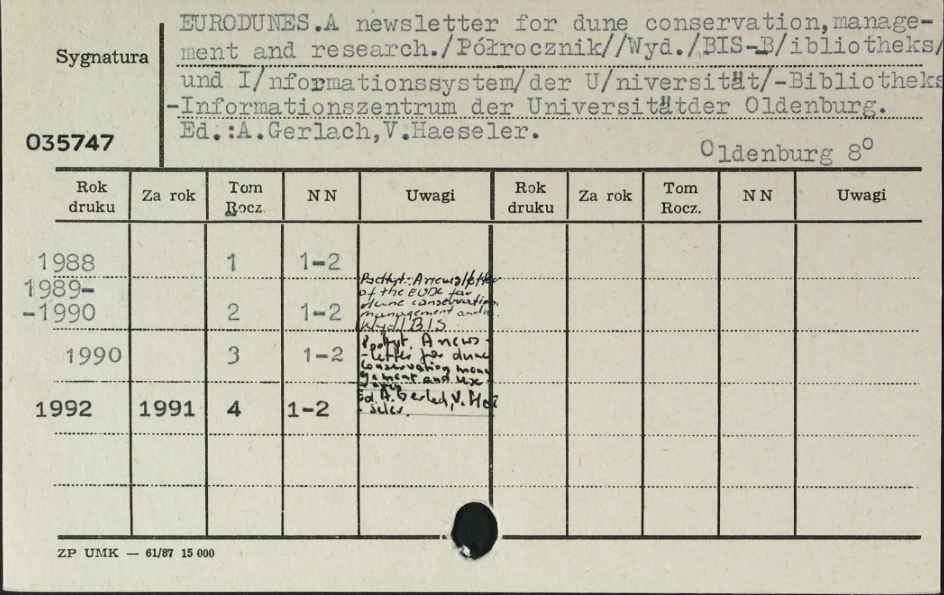 EURODUNES.A newsletter for dune conservation,manage-
Sygnatura
ment and research./Półrocznik//Wyd./BIS-B/ibliotheks/
und I/nformationssystem/der U/niversität/-Bibliotheks
-Informationszentrum der Universitätder Oldenburg.
035747
Ed.:A.Gerlach,V.Haeseler.
Oldenburg 8°
Rok druku Za rok Tom Rocz. NN Uwagi Rok druku Za rok Tom Rocz. NN Uwagi
1988 1 1-2
1989-
-1990 2 1-2
Podtyt.: A newsletter
of the EUDC for
dune conservation
management and
Wyd/BIS
1990 3 1-2
Podtyt. A news-
-letter for dune
conservation mana
gement and
1992 1991 4 1-2
Ed. A. Gerlach, V. Hae
-seler.
ZP UMK — 61/87 15 000